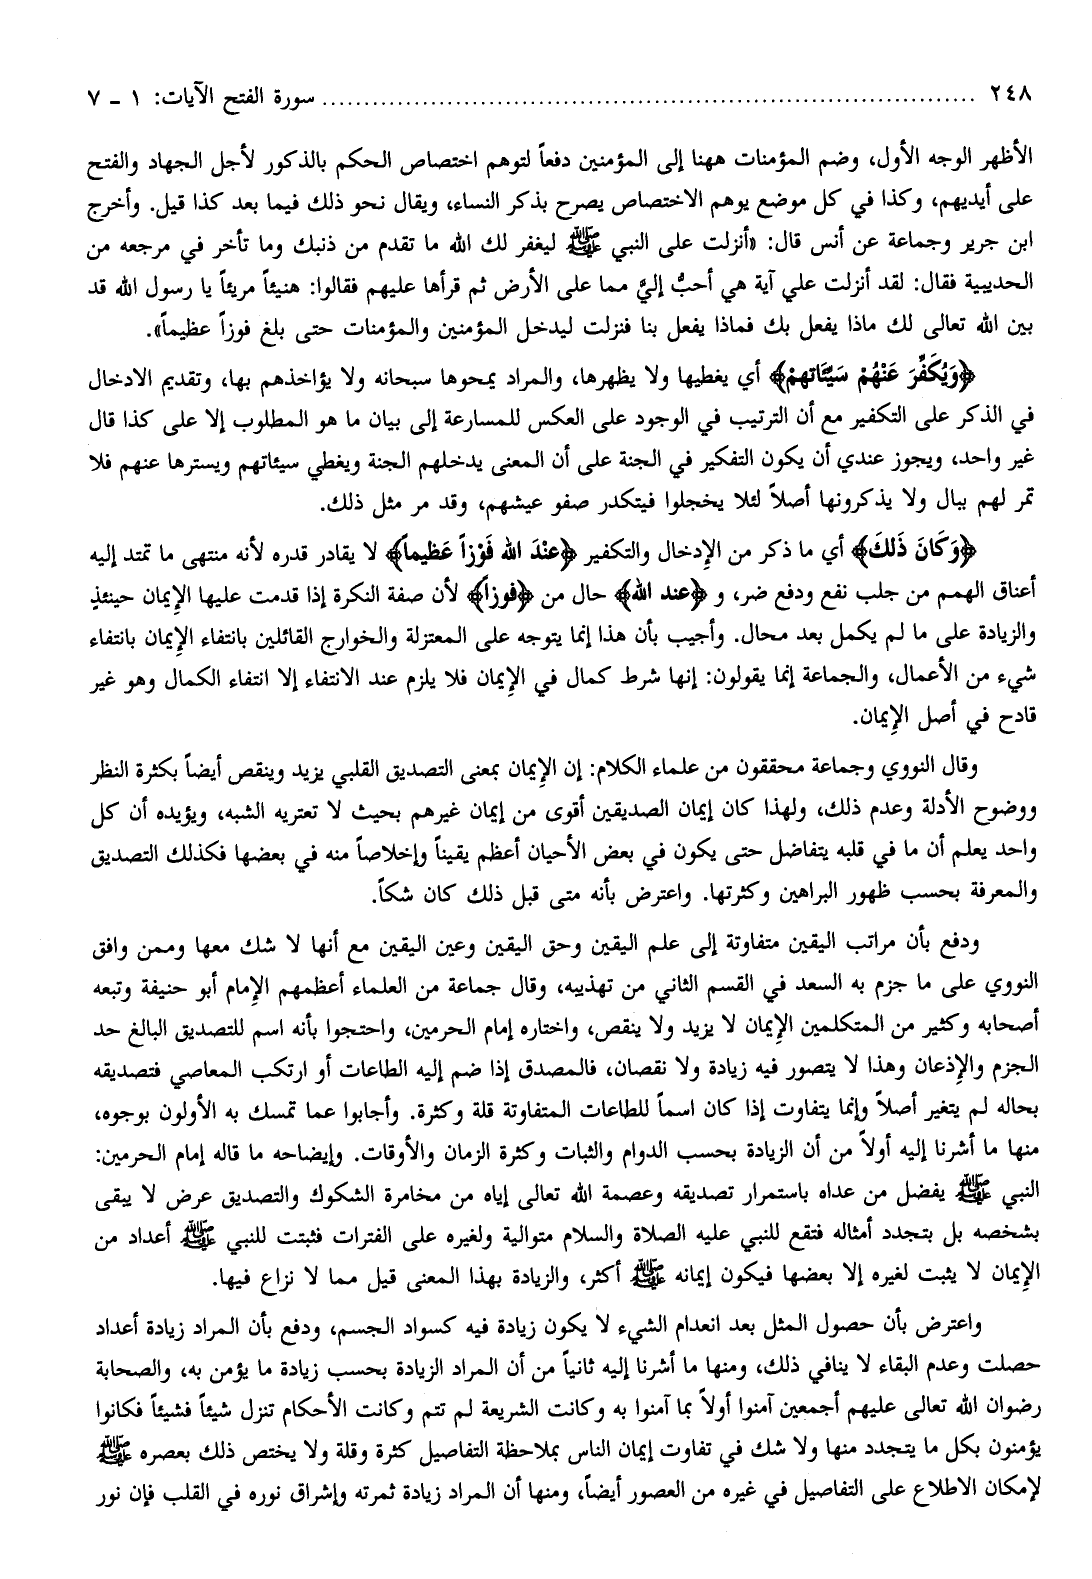 ٢٤٨ ................................................................ سورة الفتح الآيات: ١ - ٧
الأظهر الوجه الأول، وضم المؤمنات ههنا إلى المؤمنين دفعاً لتوهم اختصاص الحكم بالذكور لأجل الجهاد والفتح
على أيديهم، وكذا في كل موضع يوهم الاختصاص يصرح بذكر النساء، ويقال نحو ذلك فيما بعد كذا قيل. وأخرج
ابن جرير وجماعة عن أنس قال: «أنزلت على النبي ﷺ ليغفر لك الله ما تقدم من ذنبك وما تأخر في مرجعه من
الحديبية فقال: لقد أنزلت علي آية هي أحبُّ إليَّ مما على الأرض ثم قرأها عليهم فقالوا: هنيئاً مريئاً يا رسول الله قد
بين الله تعالى لك ماذا يفعل بك فماذا يفعل بنا فنزلت ليدخل المؤمنين والمؤمنات حتى بلغ فوزاً عظيماً».
﴿وَيُكَفِّرَ عَنْهُمْ سَيِّئَاتِهِمْ﴾ أي يغطيها ولا يظهرها، والمراد يمحوها سبحانه ولا يؤاخذهم بها، وتقديم الادخال
في الذكر على التكفير مع أن الترتيب في الوجود على العكس للمسارعة إلى بيان ما هو المطلوب إلا على كذا قال
غير واحد، ويجوز عندي أن يكون التفكير في الجنة على أن المعنى يدخلهم الجنة ويغطي سيئاتهم ويسترها عنهم فلا
تمر لهم ببال ولا يذكرونها أصلاً لئلا يخجلوا فيتكدر صفو عيشهم، وقد مر مثل ذلك.
﴿وَكَانَ ذَلكَ﴾ أي ما ذكر من الإِدخال والتكفير ﴿عنْدَ الله فَوْزاً عَظيماً﴾ لا يقادر قدره لأنه منتهى ما تمتد إليه
أعناق الهمم من جلب نفع ودفع ضر، و ﴿عند الله﴾ حال من ﴿فوزاً﴾ لأن صفة النكرة إذا قدمت عليها الإِيمان حينئذٍ
والزيادة على ما لم يكمل بعد محال. وأجيب بأن هذا إنما يتوجه على المعتزلة والخوارج القائلين بانتفاء الإِيمان بانتفاء
شيء من الأعمال، والجماعة إنما يقولون: إنها شرط كمال في الإِيمان فلا يلزم عند الانتفاء إلا انتفاء الكمال وهو غير
قادح في أصل الإِيمان.
وقال النووي وجماعة محققون من علماء الكلام: إن الإِيمان بمعنى التصديق القلبي يزيد وينقص أيضاً بكثرة النظر
ووضوح الأدلة وعدم ذلك، ولهذا كان إيمان الصديقين أقوى من إيمان غيرهم بحيث لا تعتريه الشبه، ويؤيده أن كل
واحد يعلم أن ما في قلبه يتفاضل حتى يكون في بعض الأحيان أعظم يقيناً وإخلاصاً منه في بعضها فكذلك التصديق
والمعرفة بحسب ظهور البراهين وكثرتها. واعترض بأنه متى قبل ذلك كان شكاً.
ودفع بأن مراتب اليقين متفاوتة إلى علم اليقين وحق اليقين وعين اليقين مع أنها لا شك معها وممن وافق
النووي على ما جزم به السعد في القسم الثاني من تهذيبه، وقال جماعة من العلماء أعظمهم الإِمام أبو حنيفة وتبعه
أصحابه وكثير من المتكلمين الإِيمان لا يزيد ولا ينقص، واختاره إمام الحرمين، واحتجوا بأنه اسم للتصديق البالغ حد
الجزم والإِذعان وهذا لا يتصور فيه زيادة ولا نقصان، فالمصدق إذا ضم إليه الطاعات أو ارتكب المعاصي فتصديقه
بحاله لم يتغير أصلاً وإنما يتفاوت إذا كان اسماً للطاعات المتفاوتة قلة وكثرة. وأجابوا عما تمسك به الأولون بوجوه،
منها ما أشرنا إليه أولاً من أن الزيادة بحسب الدوام والثبات وكثرة الزمان والأوقات. وإيضاحه ما قاله إمام الحرمين:
النبي ﷺ يفضل من عداه باستمرار تصديقه وعصمة الله تعالى إياه من مخامرة الشكوك والتصديق عرض لا يبقى
بشخصه بل بتجدد أمثاله فتقع للنبي عليه الصلاة والسلام متوالية ولغيره على الفترات فثبتت للنبي ﷺ أعداد من
الإِيمان لا يثبت لغيره إلا بعضها فيكون إيمانه ﷺ أكثر، والزيادة بهذا المعنى قيل مما لا نزاع فيها.
واعترض بأن حصول المثل بعد انعدام الشيء لا يكون زيادة فيه كسواد الجسم، ودفع بأن المراد زيادة أعداد
حصلت وعدم البقاء لا ينافي ذلك، ومنها ما أشرنا إليه ثانياً من أن المراد الزيادة بحسب زيادة ما يؤمن به، والصحابة
رضوان الله تعالى عليهم أجمعين آمنوا أولاً بما آمنوا به وكانت الشريعة لم تتم وكانت الأحكام تنزل شيئاً فشيئاً فكانوا
يؤمنون بكل ما يتجدد منها ولا شك في تفاوت إيمان الناس بملاحظة التفاصيل كثرة وقلة ولا يختص ذلك بعصره ﷺ
لإمكان الاطلاع على التفاصيل في غيره من العصور أيضاً، ومنها أن المراد زيادة ثمرته وإشراق نوره في القلب فإن نور